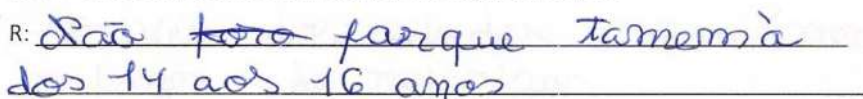 R: Não farque tamemà
dos 14 aos 16 anos